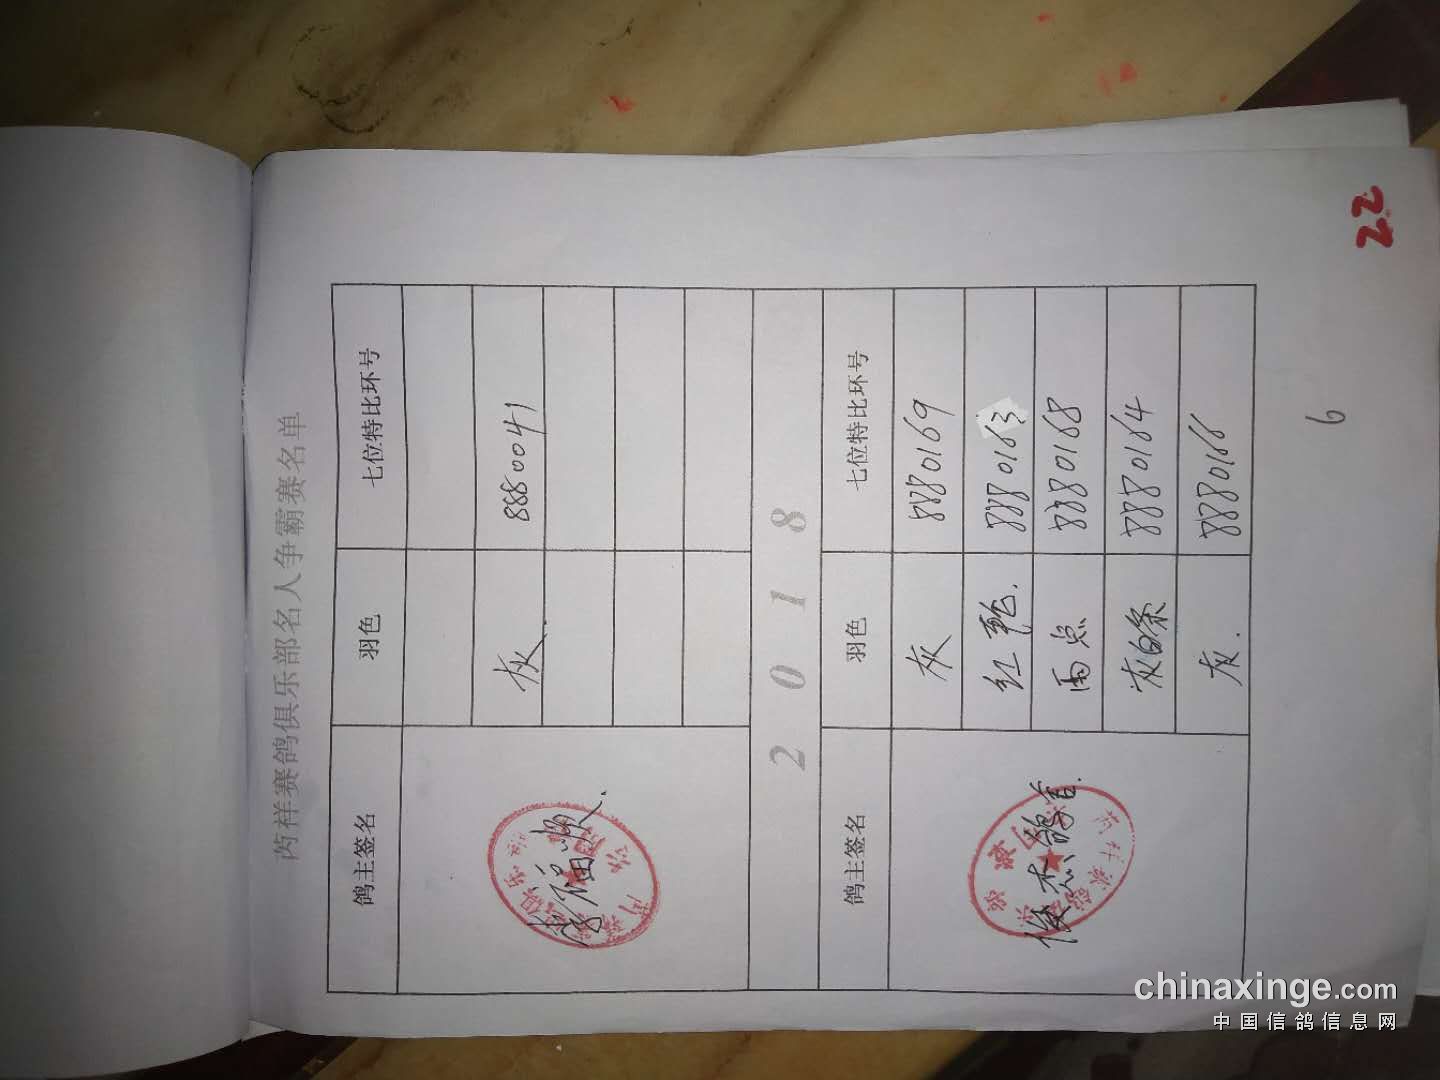 芮祥赛鸽俱乐部名人争霸赛名单
鸽主签名 羽色 七位特比环号
李福顺. 灰. 8880041
2018
鸽主签名 羽色 七位特比环号
俊杰鸽舍. 灰 8880169
红轮. 8880163
雨点 8880168
灰白条 8880164
灰. 8880166
6
22
chinaxinge.com
中国信鸽信息网